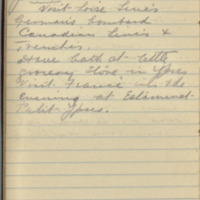 Visit Loise Lines
Germans bombard
Canadian Lines &
Trenches.
Have bath at little
grocery store in Ypres
Visit France in the
evening at Estaminet
Petit-Ypres.